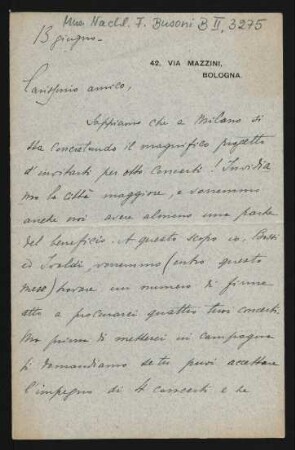 Mus. Nachl. F. Busoni B II, 3275
13 giugno.
42, VIA MAZZINI,
BOLOGNA
Carissimo amico,
Sappiamo che a Milano si
sta concretando il magnifico progetto
d'invitarti per otto concerti! Invidia
mo la città maggiore, e vorremmo
anche noi avere almeno una parte
del beneficio. A questo scopo io, Bossi
ed Ivaldi vorremmo (entro questo
mese) trovare un numero di firme
atto a procurarci quattro tuoi concerti.
Ma prima di metterci in campagna
ti domandiamo se tu puoi accettare
l'impegno di 4 concerti e se